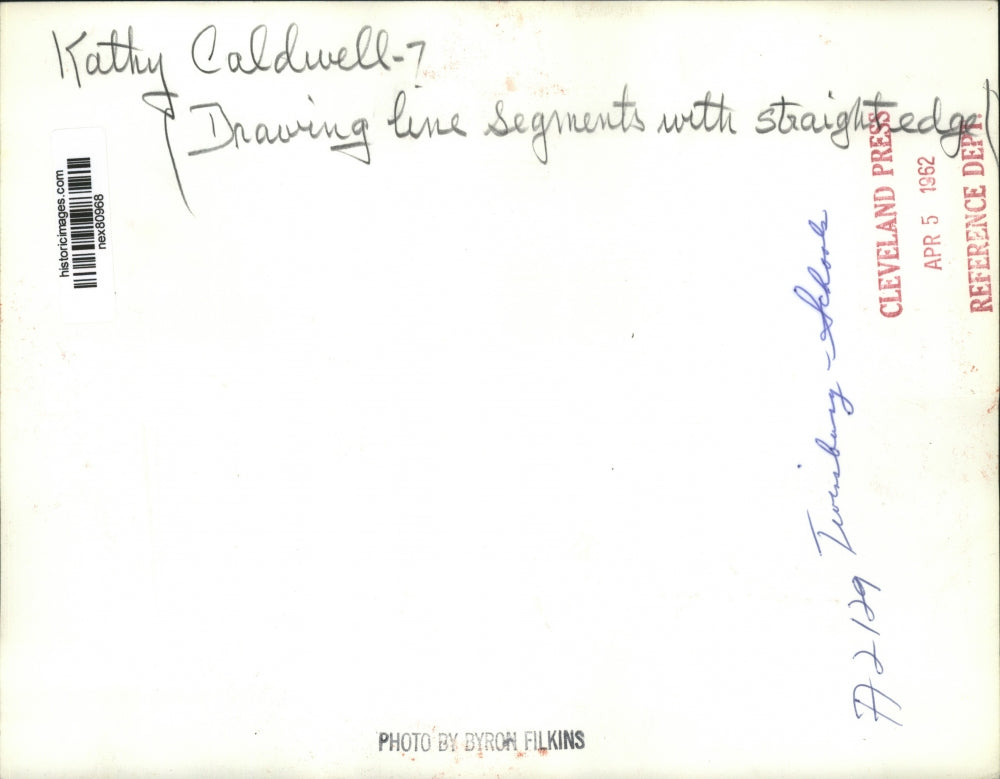 Kathy Caldwell-7
(Drawing line segments with straight edge)
historicimages.com
nex80968
CLEVELAND PRESS
APR 5 1962
REFERENCE DEPT.
Twinsburg - Schools
A2129
PHOTO BY BYRON FILKINS